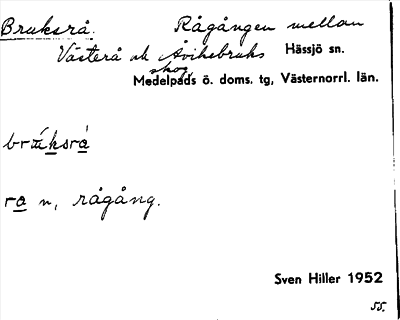 Bruksrå. Rågången mellan
Västerå ok Åvikebruks Hässjö sn.
skog
Medelpads ö. doms. tg, Västernorrl. län.
rå n, rågång.
Sven Hiller 1952
55.